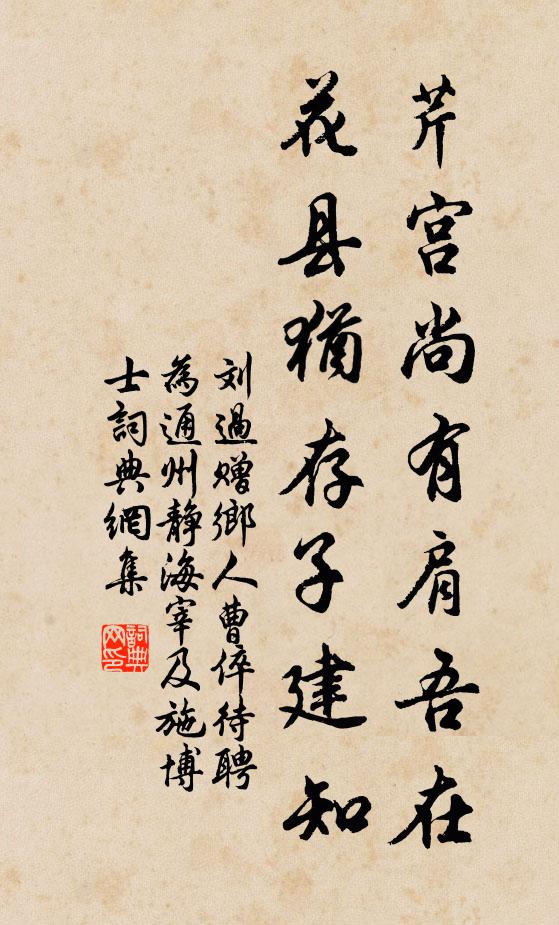 芹宫尚有肩吾在
花县猶存子建知
刘過赠鄉人曹倅待聘
為通州静海宰及施博
士詞典網集
詞典
网印